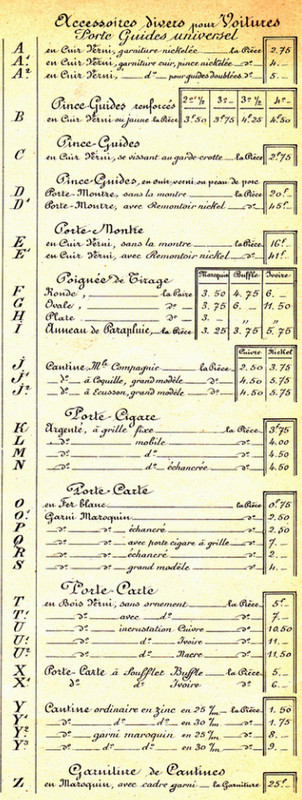 Accessoires divers pour Voitures
Porte Guides universel
A en Cuir Verni, garniture nickelée la Pièce 2.75
A' en Cuir Verni, garniture cuir, pince nickelée d° 4.-
A² en Cuir Verni, d° pour guides doublées d° 5.-
Pince-Guides renforcés 2c ½ 3c 3c ½ 4c
B en Cuir Verni ou jaune la Pièce 3.50 3.75 4.25 4.50
Pince-Guides
C en Cuir Verni, se vissant au garde-crotte la Pièce 2.75
Pince-Guides, en cuir verni ou peau de porc
D Porte-Montre, sans la montre la Pièce 20.-
D' Porte-Montre, avec Remontoir nickel d° 45.-
Porte-Montre
E en Cuir Verni, sans la montre la Pièce 16.-
E' en Cuir Verni, avec Remontoir nickel d° 41.-
Poignée de Tirage Maroquin Buffle Ivoire
F Ronde, la Paire 3.50 4.75 6.-
G Ovale, d° 3.75 6.- 11.50
H Plate d° 3.- " "
I Anneau de Parapluie, la Pièce 3.25 3.75 5.75
Cuivre Nickel
J Cantine, Mle Compagnie la Pièce 2.50 3.75
J' d° à Coquille, grand modèle d° 4.50 5.75
J² d° à Ecusson, grand modèle d° 4.50 5.75
Porte Cigare
K Argenté, à grille fixe la Pièce 3.75
L d° mobile d° 4.00
M d° d° d° 4.50
N d° d° échancrée d° 4.50
Porte-Carte
O en Fer blanc la Pièce 0.75
O' Garni Maroquin d° 2.50
P d° échancré d° 2.50
Q d° avec porte cigare à grille d° 7.-
R d° échancré d° 2.-
S d° grand modèle d° 4.-
Porte-Carte
T en Bois Verni, sans ornement la Pièce 5.-
T' d° avec d° d° 7.-
U d° incrustation Cuivre d° 10.50
U' d° d° Ivoire d° 11.-
U² d° d° Nacre d° 11.50
X Porte-Carte à Soufflet Buffle la Pièce 5.-
X' d° d° Ivoire d° 6.-
Y Cantine ordinaire en zinc en 25 c/m la Pièce 1.50
Y' d° d° d° en 30 c/m d° 1.75
Y² d° garni maroquin en 25 c/m d° 8.-
Y³ d° d° d° en 30 c/m d° 9.-
Garniture de Cantines
Z en Maroquin, avec cadre garni la Garniture 25.-